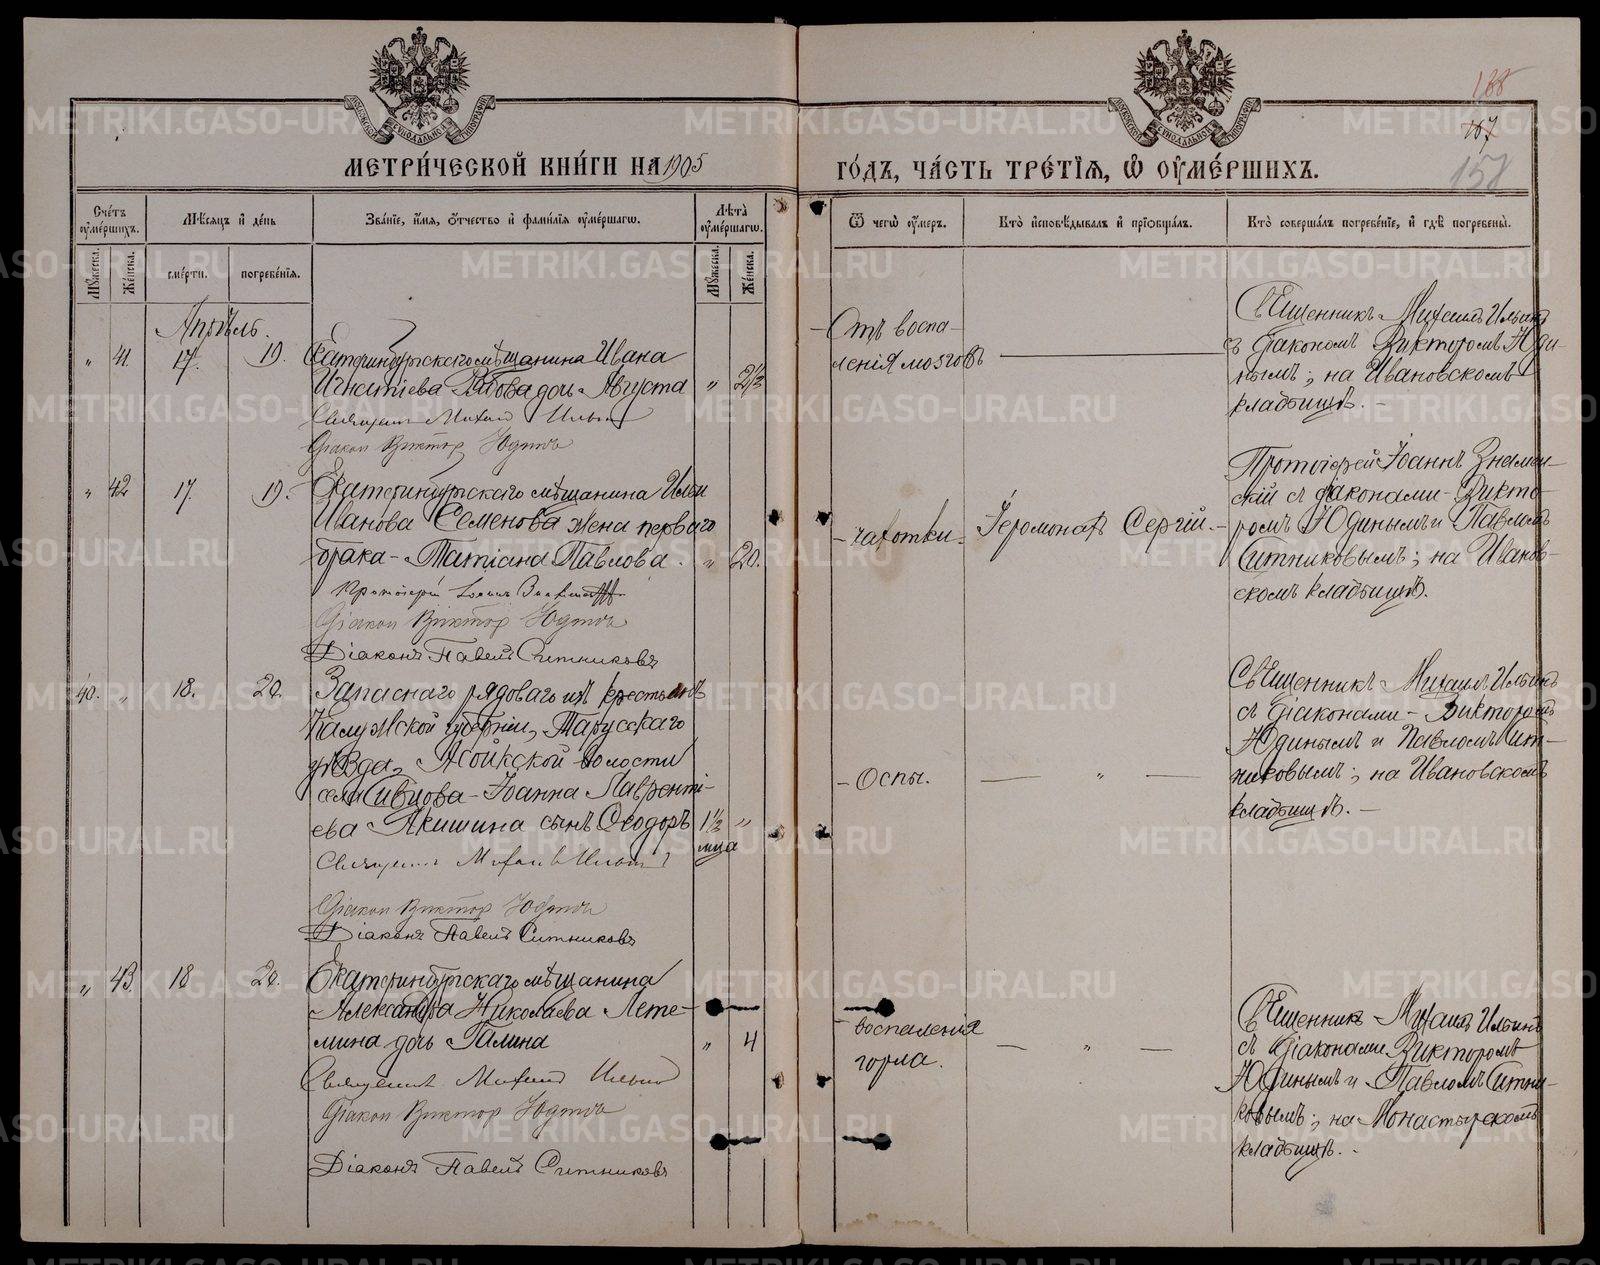 МЕТРИ́ЧЕСКОЙ КНИ́ГИ НА 1905
ГО́ДЪ, ЧА́СТЬ ТРЕ́ТІѦ, Ѡ ОУ҆МЕ́РШИХЪ.
168
167
158
Сче́тъ оу҆ме́ршихъ.
Мѣ́сяцъ и҆ де́нь
Зва́нїе, и҆́мя, ѻ҆́тчество и҆ фами́лїя оу҆ме́ршагѡ.
Лѣ́та оу҆ме́ршагѡ.
Ѿ чегѡ̀ оу҆́меръ.
Кто̀ и҆сповѣ́дывалъ и҆ прїѡбща́лъ.
Кто̀ соверша́лъ погребе́нїе, и҆ гдѣ̀ погребены̀.
Мꙋ́жеска.
Же́нска.
сме́рти.
погребе́нїя.
Мꙋ́жеска.
Же́нска.
Апрѣль.
" 41. 17. 19.
Екатеринбургскаго мѣщанина Ивана
Игнатіева дочь Августа " 2½
Священникъ Михаил Ильин
Діакон Виктор Юдинъ
Отъ воспа-
ленія мозговъ
Священникъ Михаилъ Ильинъ
съ діакономъ Викторомъ Юди-
нымъ; на Ивановскомъ
кладбищѣ. –
" 42 17. 19.
Екатеринбургскаго мѣщанина Ильи
Иванова Семенова жена перваго
брака – Татіана Павлова. " 20.
Протоіерей Іоанн
Діакон Виктор Юдинъ
Діаконъ Павелъ Ситниковъ
– чахотки –
Іеромонахъ Сергій. –
Протоіерей Іоаннъ Знамен-
скій съ діаконами – Викто-
ромъ Юдинымъ и Павломъ
Ситниковымъ; на Иванов-
скомъ кладбищѣ.
40. " 18. 20.
Запаснаго рядоваго изъ крестьянъ
Калужской губерніи, Тарусскаго
уѣзда, волости
села Сивцова – Іоанна Лавренті-
ева Якишина сынъ Ѳеодоръ 1½ "
мца
Священникъ Михаил Ильин
Діакон Виктор Юдинъ
Діаконъ Павелъ Ситниковъ
– Оспы.
— " —
Священникъ Михаилъ Ильинъ
съ діаконами – Викторомъ
Юдинымъ и Павломъ Сит-
никовымъ; на Ивановскомъ
кладбищѣ. –
" 43. 18 20.
Екатеринбургскаго мѣщанина
Александра Николаева Лете-
мина дочь Галина " 4
Священникъ Михаил Ильин
Діакон Виктор Юдинъ
Діаконъ Павелъ Ситниковъ
– воспаленія
горла.
— " —
Священникъ Михаилъ Ильинъ
съ діаконами Викторомъ
Юдинымъ и Павломъ Ситни-
ковымъ; на Монастырскомъ
кладбищѣ. –
METRIKI.GASO-URAL.RU